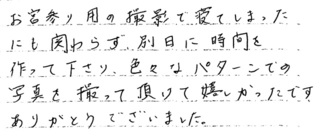 お宮参り用の撮影で寝てしまった
にも関わらず、別日に時間を
作って下さり、色々なパターンでの
写真を撮って頂けて嬉しかったです
ありがとうございました。